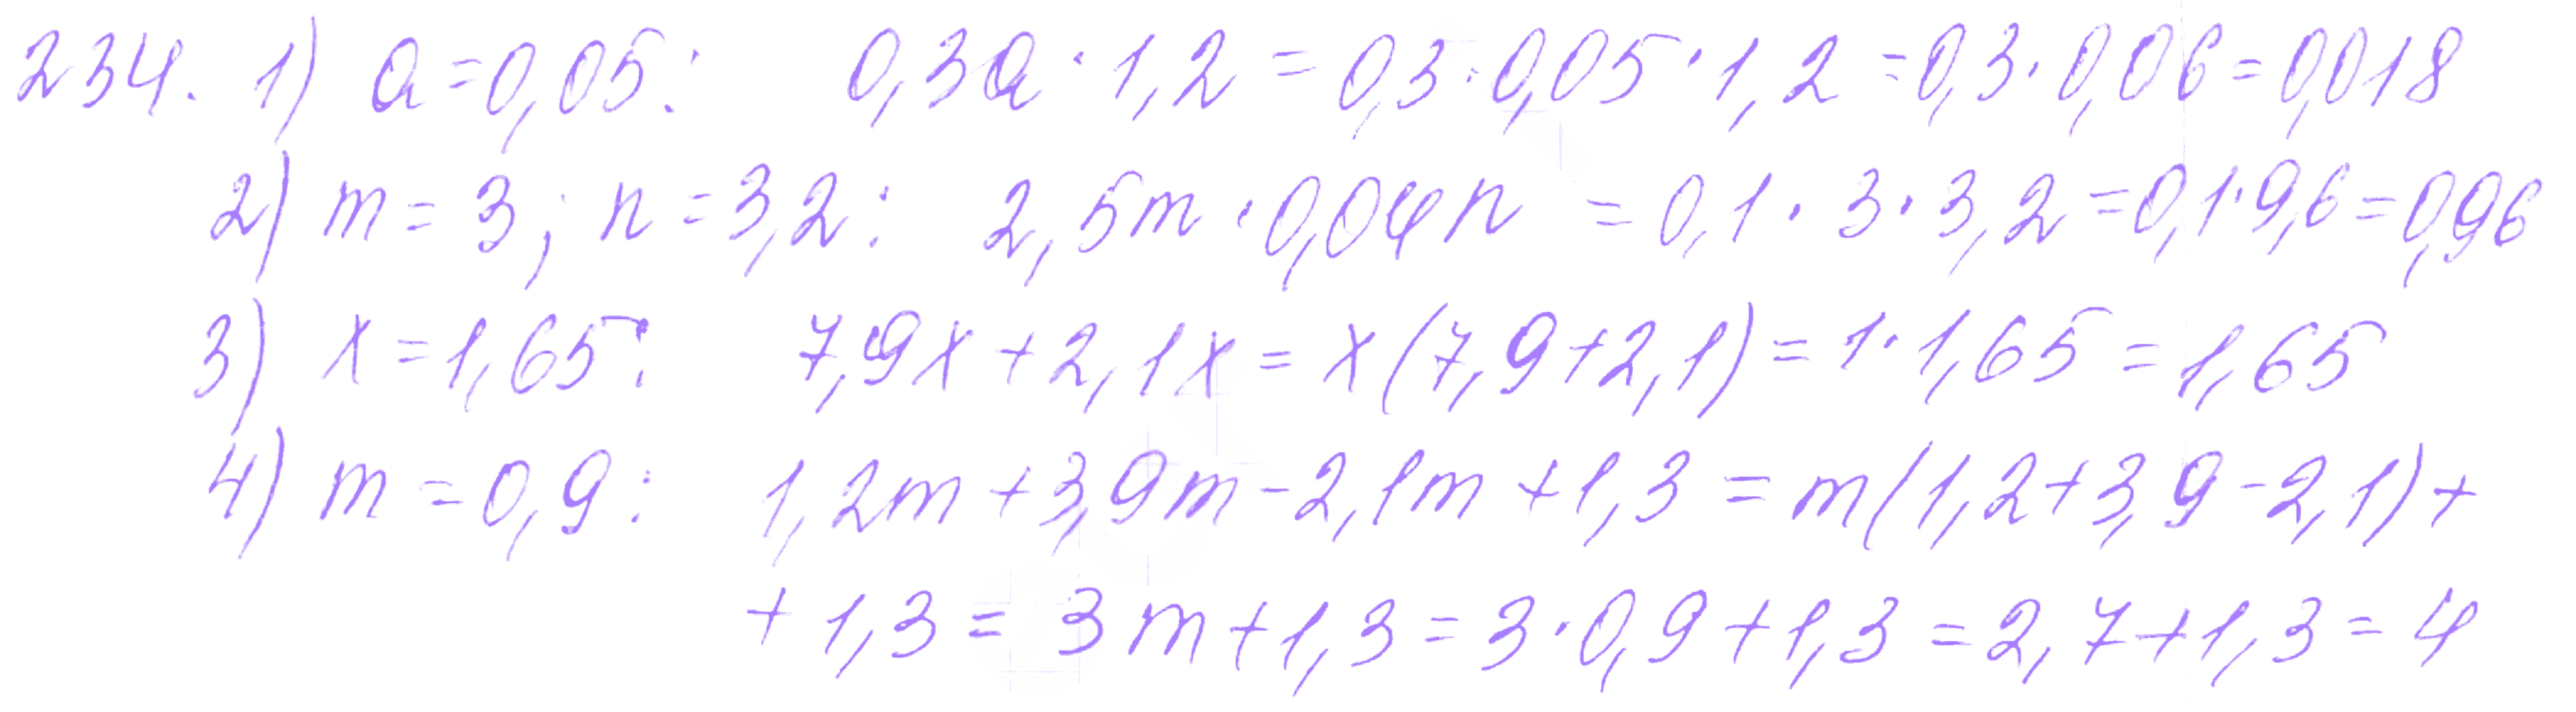 234. 1) a=0,05: 0,3a·1,2=0,3·0,05·1,2=0,3·0,06=0,018
2) m=3; n=3,2: 2,5m·0,04n=0,1·3·3,2=0,1·9,6=0,96
3) x=1,65: 7,9x+2,1x=x(7,9+2,1)=1·1,65=1,65
4) m=0,9: 1,2m+3,9m-2,1m+1,3=m(1,2+3,9-2,1)+
+1,3=3m+1,3=3·0,9+1,3=2,7+1,3=4